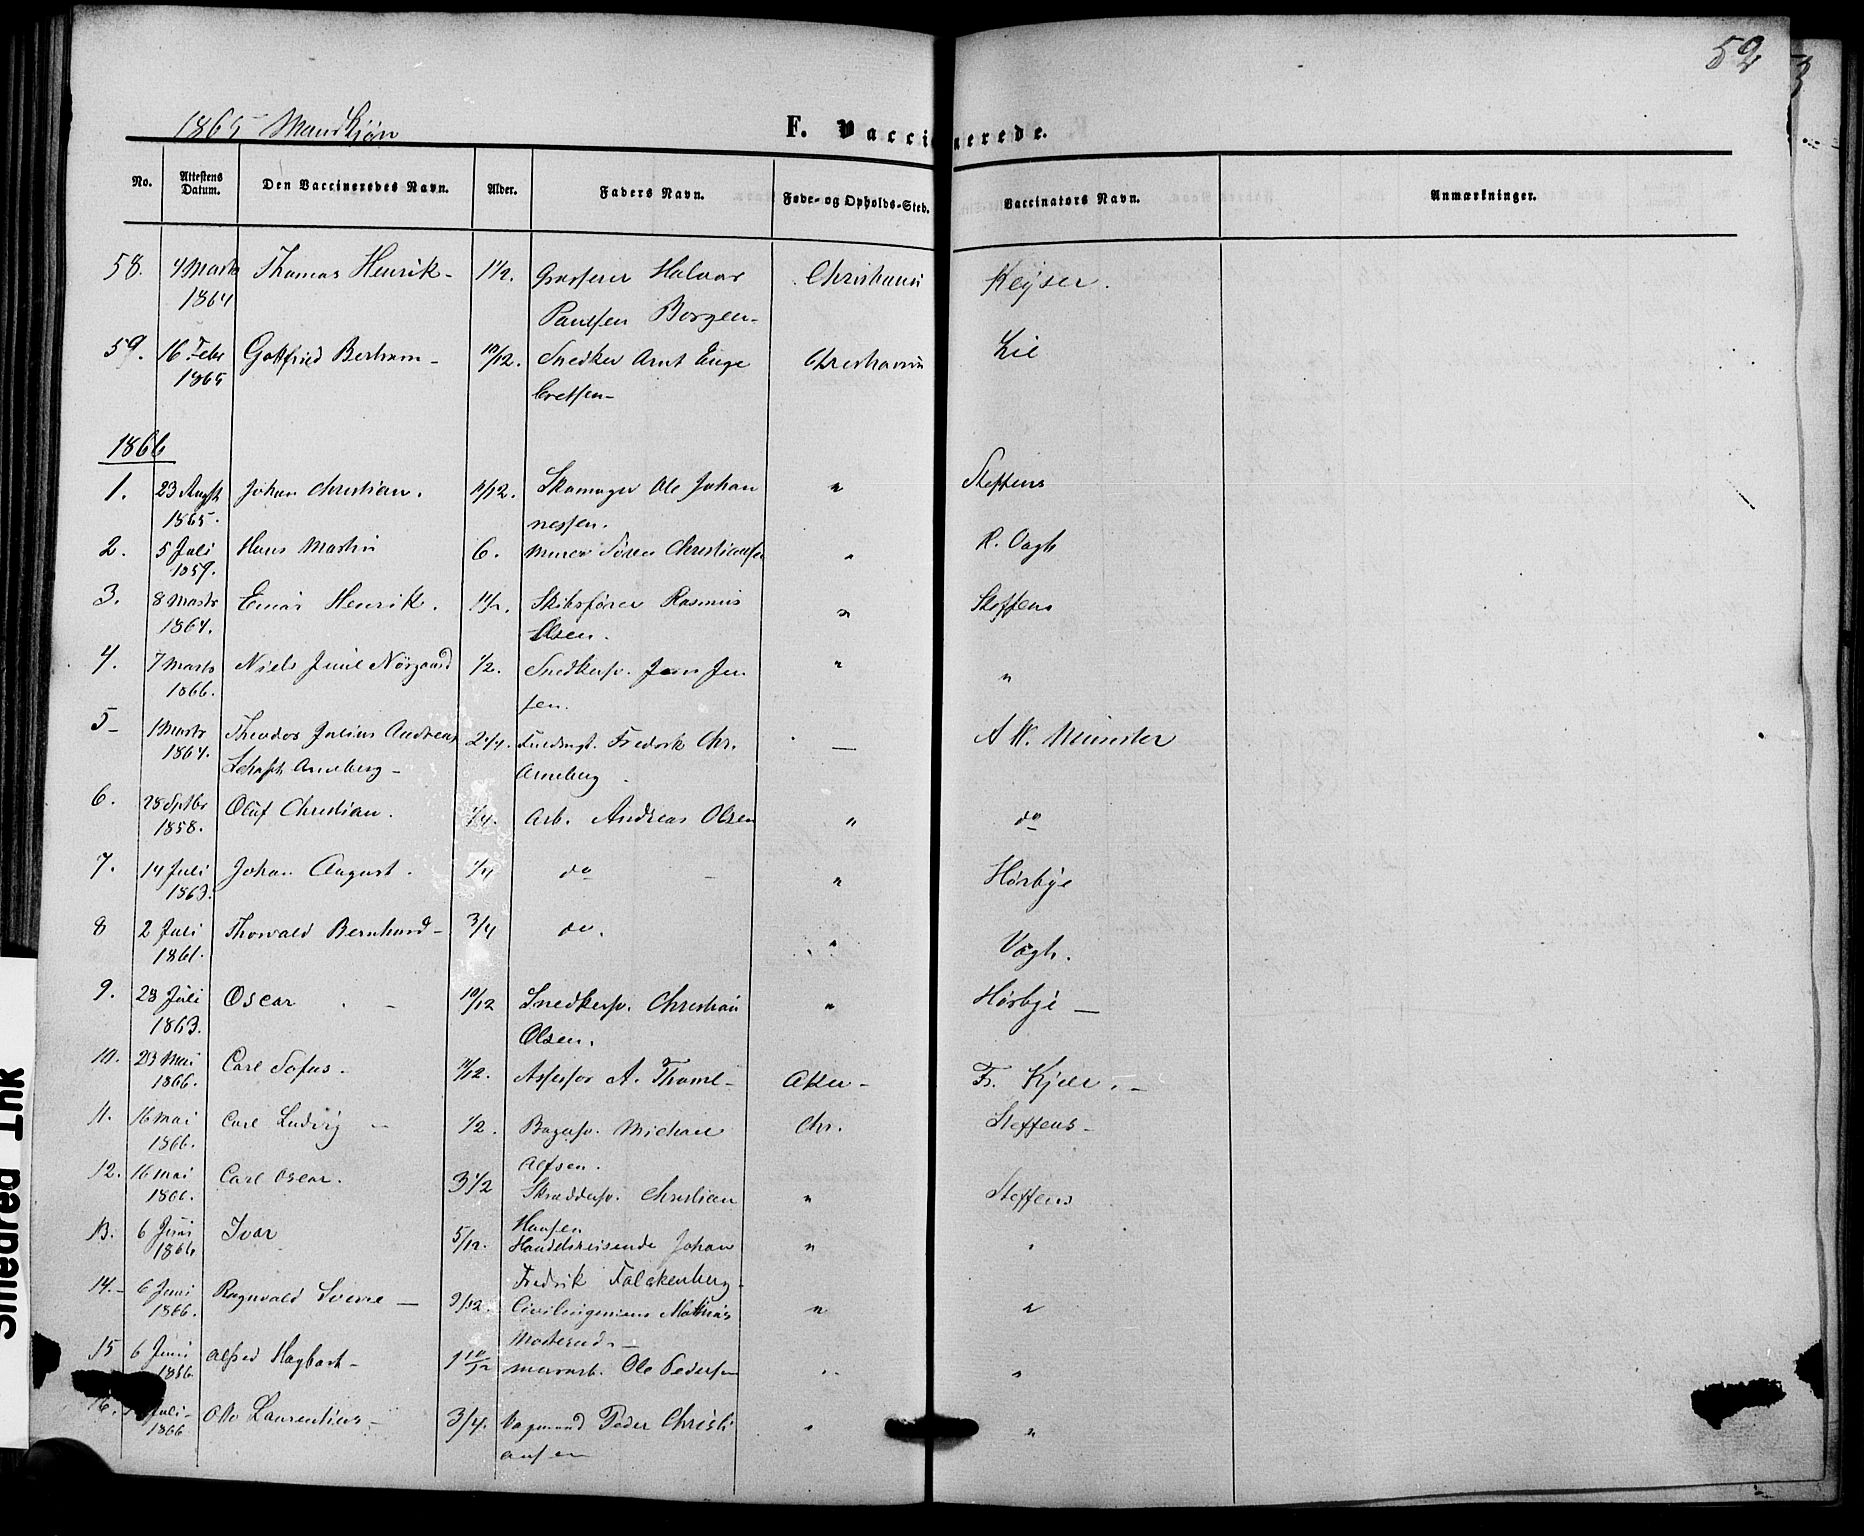 52
1865 Mandkjøn
F. Vaccinerede.
No. Attestens Datum. Den Vaccineredes Navn. Alder. Faders Navn. Føde- og Opholds-Sted. Vaccinators Navn. Anmærkninger.
58. 4 Marts Thomas Henrik - 1 1/2. Halvor Christiania Keyser.
1864 Paulsen Borgen -
59. 16 Febr Gottfried Bertram - 10/12. Snedker Arnt Enge Christiania Lie
1865 bretsen -
1866
1. 23 Augst Johan Christian. 4/12. Skomager Ole Johan " Steffens
1865. nessen.
2. 5 Juli Hans Martin 6. Murer Søren Christiansen " R. Vogt
1859.
3. 8 Marts Einar Henrik. 1 1/2. Skibsfører Rasmus " Steffens
1864. Olsen.
4. 7 Marts Niels Juul Nörgaard 1/2. Snedkersv. Jens Jen " "
1866. sen.
5 - 1 Marts Theodor Julius Andreas 2 1/4. Fuldmgt. Fredrik Chr. — A W. Münster
1864. Arneberg - Arneberg
6. 28 Sptbr Oluf Christian. 1/4. Arb. Andreas Olsen " do
1858.
7. 14 Juli Johan August. 1/4 do - " Hörbye
1863.
8 2 Juli Thorvald Bernhard - 3/4 do. " Vogt.
1861.
9. 28 Juli Oscar - 10/12 Snedkersv. Christian " Hörbye —
1863. Olsen.
10. 23 Mai Carl Sofus - 11/12. Assessor A. Thomle - Aker - Fr. Kjær. -
1866.
11. 16 Mai Carl Ludvig - 1/2. Bagersv. Michael Chr. Steffens -
1866. Alfsen.
12. 16 Mai Carl Oscar. 3 1/2 Skræddersv. Christian " Steffens
1866. Hansen
13. 6 Juni Ivar 5/12. Handelsreisende Johan " "
1866 Fredrik Falckenberg -
14. - 6 Juni Ragnvald Sverre — 9/12. Civilingeniør Mathias " "
1866. Mosterud -
15 6 Juni Alfred Hagbart - 1 10/12 Murarb. Ole Pedersen " "
1866
16. Juli - Otto Laurentius - 3/4. Vognmand Peder Christi " "
1866 ansen
Smedred Ink